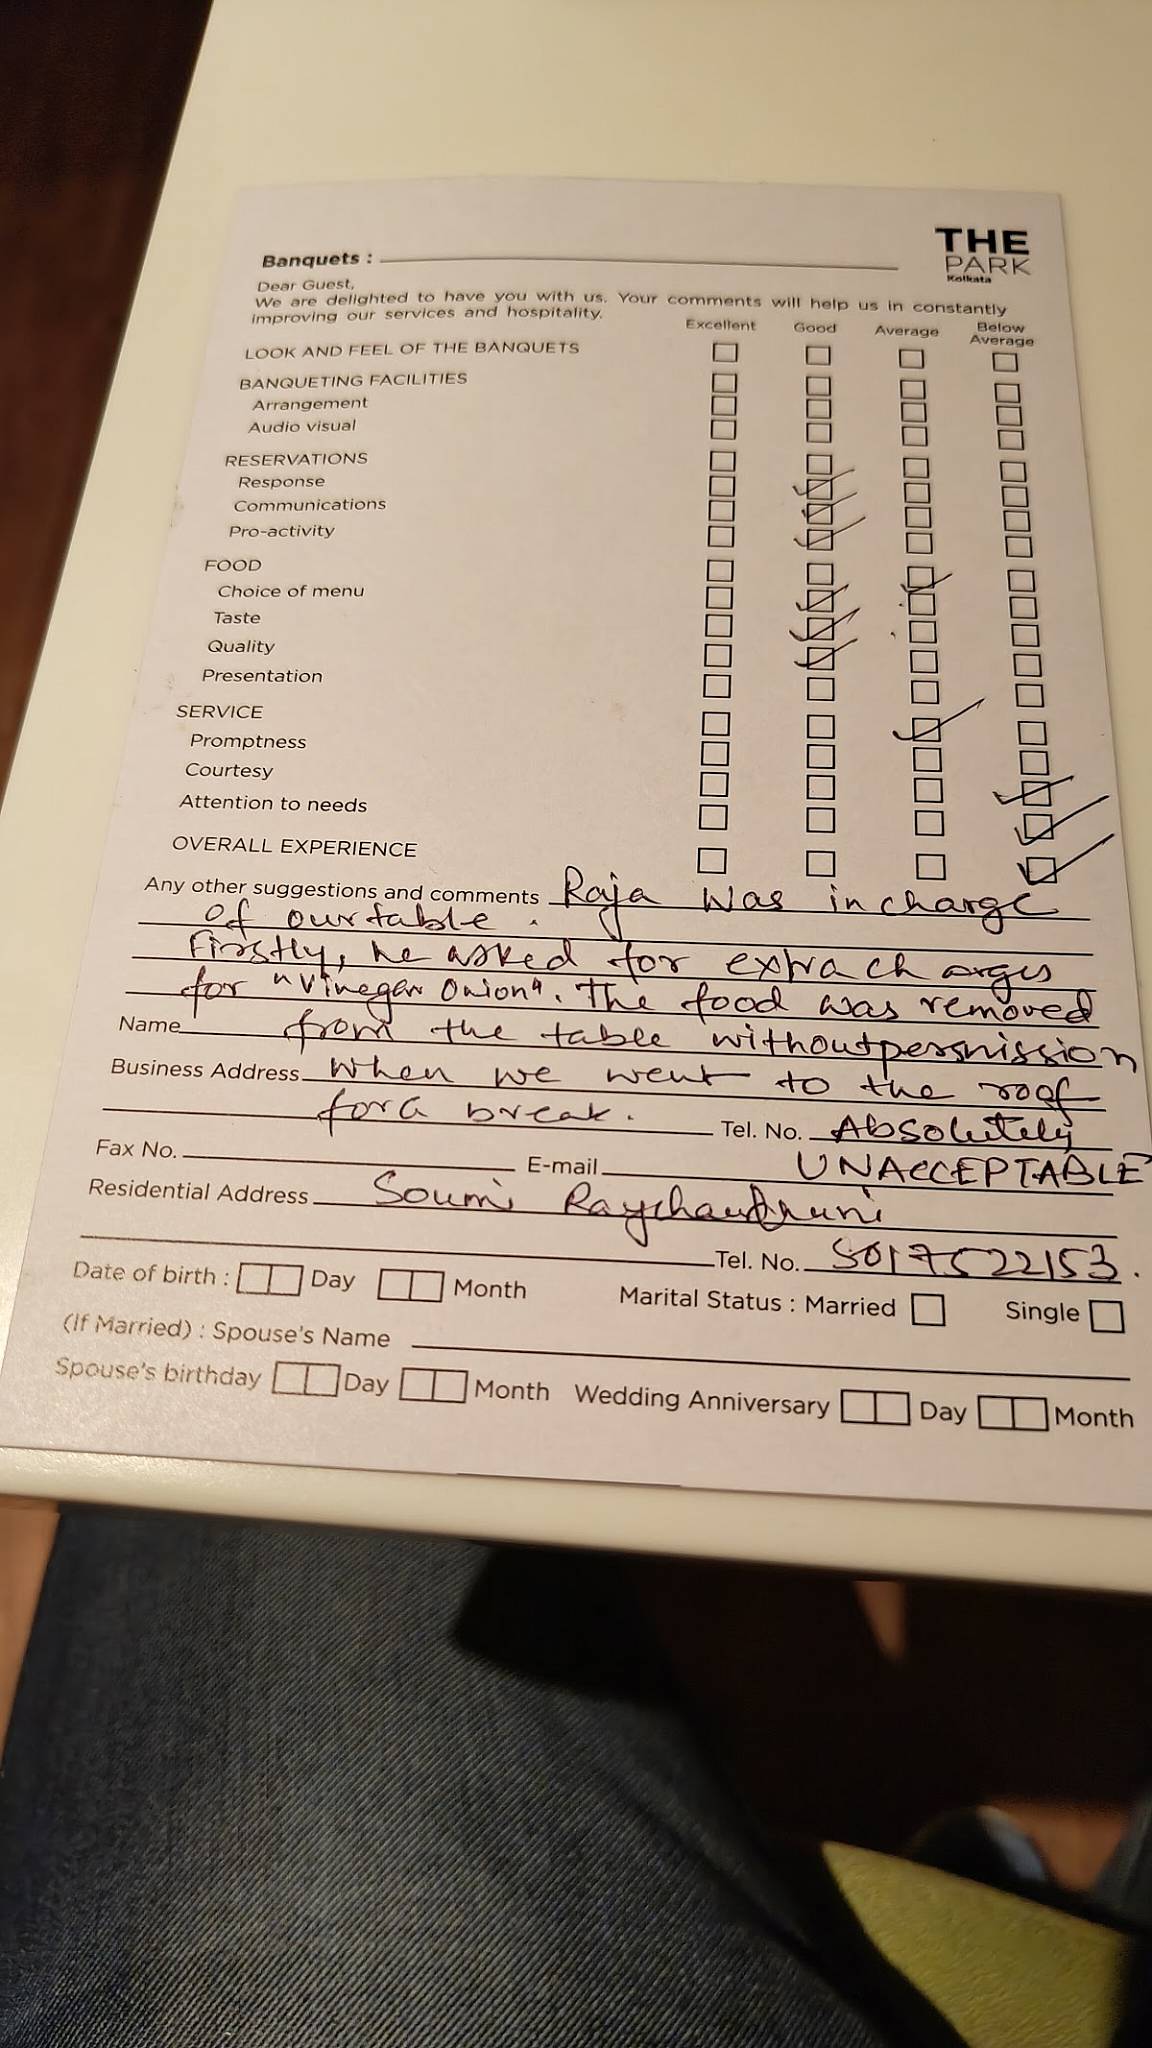 THE
PARK
Kolkata
Banquets :
Dear Guest,
We are delighted to have you with us. Your comments will help us in constantly
improving our services and hospitality.
Excellent Good Average Below Average
LOOK AND FEEL OF THE BANQUETS
BANQUETING FACILITIES
Arrangement
Audio visual
RESERVATIONS
Response
Communications
Pro-activity
FOOD
Choice of menu
Taste
Quality
Presentation
SERVICE
Promptness
Courtesy
Attention to needs
OVERALL EXPERIENCE
Any other suggestions and comments Raja was in charge
of our table.
Firstly, he asked for extra charges
for "vinegar onion". The food was removed
Name from the table without permission
Business Address when we went to the roof
for a break. Tel. No. Absolutely
Fax No. E-mail UNACCEPTABLE
Residential Address Soumi Raychaudhuri
Tel. No. 8017522153.
Date of birth : Day Month Marital Status : Married Single
(If Married) : Spouse's Name
Spouse's birthday Day Month Wedding Anniversary Day Month